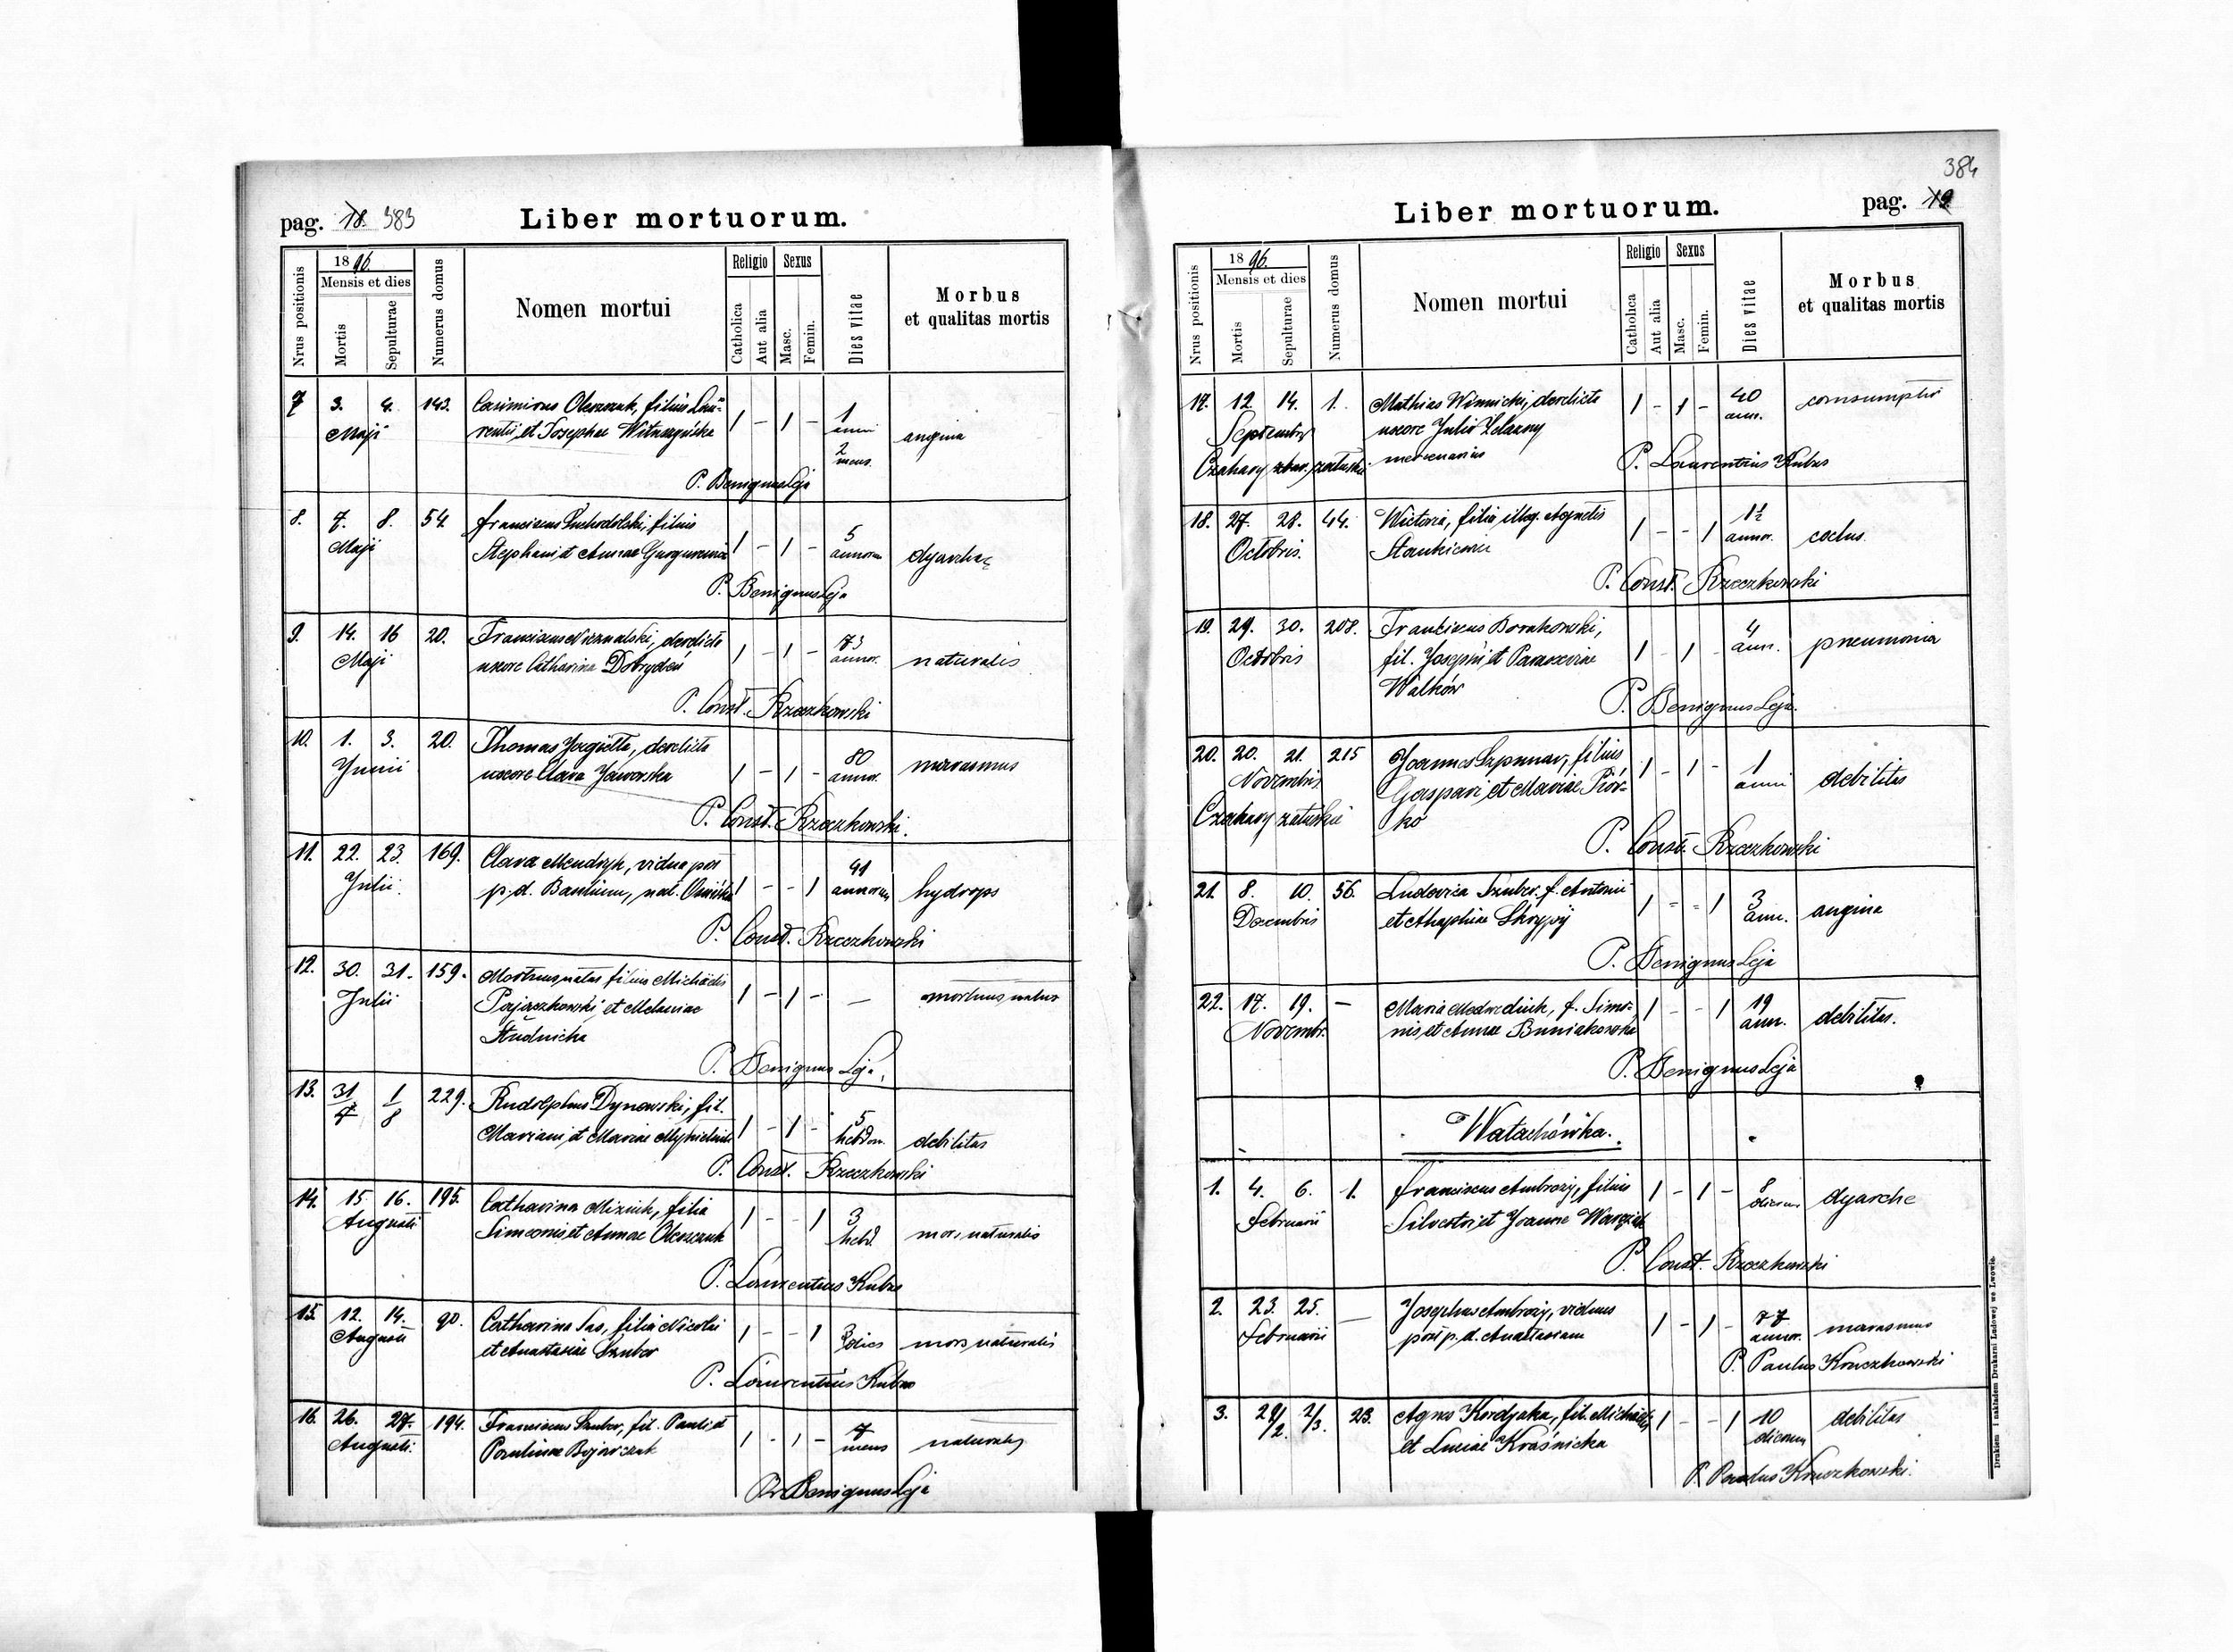 pag. 18. 383
Liber mortuorum.
Nrus positionis
1896.
Mensis et dies
Mortis
Sepulturae
Numerus domus
Nomen mortui
Religio
Catholica
Aut alia
Sexus
Masc.
Femin.
Dies vitae
Morbus
et qualitas mortis
7 3. 4. 143. Casimirus Oleszczuk, filius Lau-
Maji rentii et Josephae 1 - 1 - 1 anni 2 mens. angina
P. Benignus Leja
8. 7. 8. 54. Franciscus Suchodolski, filius
Maji Stephani et Annae 1 - 1 - 5 annorum
P. Benignus Leja
9. 14. 16 20. Franciscus derelicta
Maji uxore Catharina Dobrydeń 1 - 1 - 73 annor. naturalis
P. Const. Rzeczkowski
10. 1. 3. 20. Thomas Jagiełła, derelicta
Junii uxore Clara Jaworska 1 - 1 - 80 annor. marasmus
P. Const. Rzeczkowski.
11. 22. 23. 169. Clara Mendryk, vidua post
Julii p. d. nat. 1 - - 1 41 annorum hydrops
P. Const. Rzeczkowski
12. 30. 31. 159. Mortuus natus filius Michaelis
Julii Pajączkowski et Melaniae 1 - 1 - — mortuus natus
Studnicka
P. Benignus Leja.
13. 31/7 1/8 229. Rudolphus Dynowski, fil.
Mariani et Mariae 1 - 1 - 5 hebdom. debilitas
P. Const. Rzeczkowski
14. 15. 16. 195. Catharina Miziuk, filia
Augusti Simeonis et Annae Oleszczuk 1 - - 1 3 hebd. mors naturalis
P. Laurentius Kubas
15. 12. 14. 90. Catharina Sas, filia Nicolai
Augusti et Anastasiae Szuber 1 - - 1 3 dies mors naturalis
P. Laurentius Kubas
16. 26. 27. 194. Franciscus Szuber, fil. Pauli et
Augusti. Paulinae Bojarczuk 1 - 1 - 7 mens naturalis
P. Benignus Leja
384
Liber mortuorum.
pag. 19
Nrus positionis
1896.
Mensis et dies
Mortis
Sepulturae
Numerus domus
Nomen mortui
Religio
Catholica
Aut alia
Sexus
Masc.
Femin.
Dies vitae
Morbus
et qualitas mortis
17. 12. 14. 1. Mathias Winnicki, derelicta 1 - 1 - 40 ann. consumptio
Septembris uxore Julia Żelazny
Czahary mercenarius P. Laurentius Kubas
18. 27. 28. 44. Victoria, filia illeg. Agnetis 1 - - 1 1½ annor.
Octobris. Stankiewicz
P. Const. Rzeczkowski
19. 29. 30. 208. Franciscus Borakowski,
Octobris fil. Josephi et Parasceviae 1 - 1 - 4 ann. pneumonia
Walków
P. Benignus Leja.
20. 20. 21. 215 Joannes Szpunar, filius 1 - 1 - 1 anni debilitas
Novembris Gaspari et Mariae Piór-
Czahary zatuskie ko
P. Const. Rzeczkowski
21. 8. 10. 56. Ludovica Szuber f. Antonii 1 - - 1 3 ann. angina
Decembris et Agaphiae Skrypij
P. Benignus Leja
22. 17. 19. — Maria Medwediuk, f. Simo- 1 - - 1 19 ann. debilitas.
Novembr. nis et Annae Buniakowska
P. Benignus Leja
Watachówka.
1. 4. 6. 1. Franciscus Ambroży, filius 1 - 1 - 8 dierum dyarche
Februarii Silvestri et Joannae
P. Const. Rzeczkowski
2. 23. 25. — Josephus Ambroży, viduus 1 - 1 - 77 annor. marasmus
Februarii post p. d. Anastasiam
P. Paulus Kruczkowski
3. 29/2. 2/3. 23. Agnes Kordjaka, fil. Michaelis 1 - - 1 10 dierum debilitas
et Luciae Kraśnicka
P. Paulus Kruczkowski.
Drukiem i nakładem Drukarni Ludowej we Lwowie.